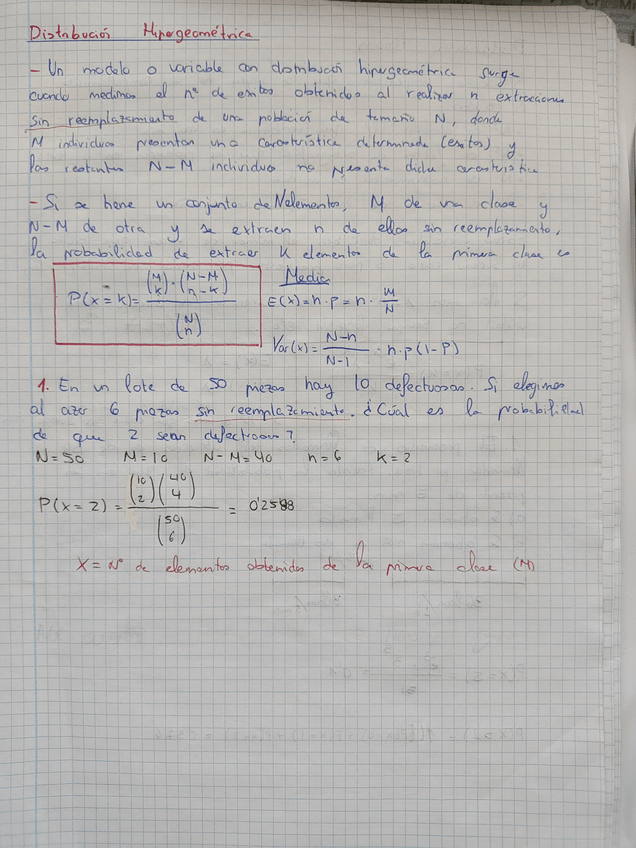 Distribución Hipergeométrica
- Un modelo o variable con distribución hipergeométrica surge
cuando medimos el nº de exitos obtenidos al realizar n extracciones
sin reemplazamiento de una población de tamaño N, donde
M individuos presentan una característica determinada (exitos) y
los restantes N-M individuos no presenta dicha característica
- Si se tiene un conjunto de N elementos, M de una clase y
N-M de otra y se extraen n de ellos sin reemplazamiento,
la probabilidad de extraer K elementos de la primera clase es
P(x=k) = (M k)·(N-M n-k) / (N n)
Media
E(x)=n·p=n·M/N
Var(x)= N-n/N-1 · n·p(1-P)
1. En un lote de 50 piezas hay 10 defectuosas. Si elegimos
al azar 6 piezas sin reemplazamiento. ¿Cúal es la probabilidad
de que 2 sean defectuosas?
N=50 M=10 N-M=40 n=6 k=2
P(x=2) = (10 2)(40 4) / (50 6) = 0'2588
X = Nº de elementos obtenidos de la primera clase (M)